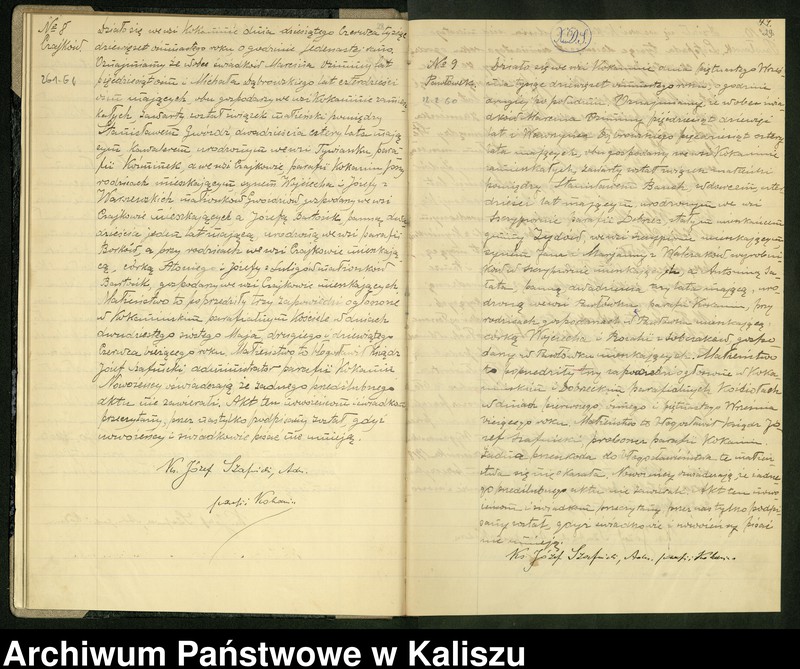 № 8
Czajków.
Działo się we wsi Kokaninie dnia dziesiątego Czerwca tysiąc
dziewięćset ósmego roku o godzinie jedenastej rano.
Oznajmiamy że wobec świadków Marcina lat
pięćdziesiąt ośm i Michała Dąbrowskiego lat czterdzieści
mających, obu gospodarzy we wsi Kokaninie zamiesz
kałych, zawarty został związek małżeński pomiędzy
Stanisławem dwadzieścia cztery lata mają
cym kawalerem urodzonym we wsi Tywianku, para
fii Koźminek, a we wsi Czajkowie parafii Kokanin przy
rodzicach mieszkającym synem Wojciecha i Józefy z
małżonków gospodarzy we wsi
Czajkowie mieszkających a Józefą Bartosik, panną, dwa
dzieścia jeden lat mającą, urodzoną we wsi parafii
a przy rodzicach we wsi Czajkowie mieszkają
cą, córką i Józefy z małżonków
Bartosik, gospodarzy we wsi Czajkowie mieszkających.
Małżeństwo to poprzedziły trzy zapowiedzi ogłoszone
w Kokanińskim parafialnym Kościele w dniach
dwudziestego szóstego Maja, drugiego i dziewiątego
Czerwca bieżącego roku. Małżeństwo to błogosławił Ksiądz
Józef Szafnicki administrator parafii Kokanin.
Nowożeńcy oświadczają że żadnego przedślubnego
aktu nie zawierali. Akt ten nowożeńcom i świadkom
przeczytany, przez nas tylko podpisany został, gdyż
nowożeńcy i świadkowie pisać nie umieją.
Ks. Józef Szafnicki, Adm.
parafii Kokanin
№ 9
Pawłówek.
Działo się we wsi Kokaninie dnia piętnastego Wrześ
nia tysiąc dziewięćset ósmego roku, o godzinie
drugiej po południu. Oznajmiamy, że wobec świa
dków Marcina pięćdziesiąt dziewięć
lat i Wawrzyńca Dąbrowskiego pięćdziesiąt cztery
lata mających, obu gospodarzy we wsi Kokaninie
zamieszkałych, zawarty został związek małżeński
pomiędzy Stanisławem Banach, wdowcem,
dzieści lat mającym, urodzonym we wsi
Skrzypównie parafii Dobrzec, stałym mieszkańcem
gminy Żydów, we wsi mieszkającym
synem Jana i Maryanny z Walczaków wyrobni
ków w Szczypiornie mieszkających, a Antoniną
panną, dwadzieścia trzy lata mającą, uro
dzoną we wsi Pawłówku, parafii Kokanin, przy
rodzicach gospodarzach w Pawłówku mieszkającą,
córką Wojciecha i Rozalii z Sobczaków gospo
darzy w Pawłówku mieszkających. Małżeństwo
to poprzedziły trzy zapowiedzi ogłoszone w Koka
nińskim i Dobrzeckim parafialnych Kościołach
w dniach pierwszego, ósmego i piętnastego Września
bieżącego roku. Małżeństwo to błogosławił ksiądz Jó
zef Szafnicki proboszcz parafii Kokanin.
Żadna przeszkoda do błogosławieństwa tego małżeń
stwa się nie okazała. Nowożeńcy oświadczają, że żadne
go przedślubnego aktu nie zawierali. Akt ten nowo
żeńcom i świadkom przeczytany przez nas tylko podpi
sany został, gdyż świadkowie i nowożeńcy pisać
nie umieją.
Ks. Józef Szafnicki, Adm. parafii Kokanin.
Archiwum Państwowe w Kaliszu